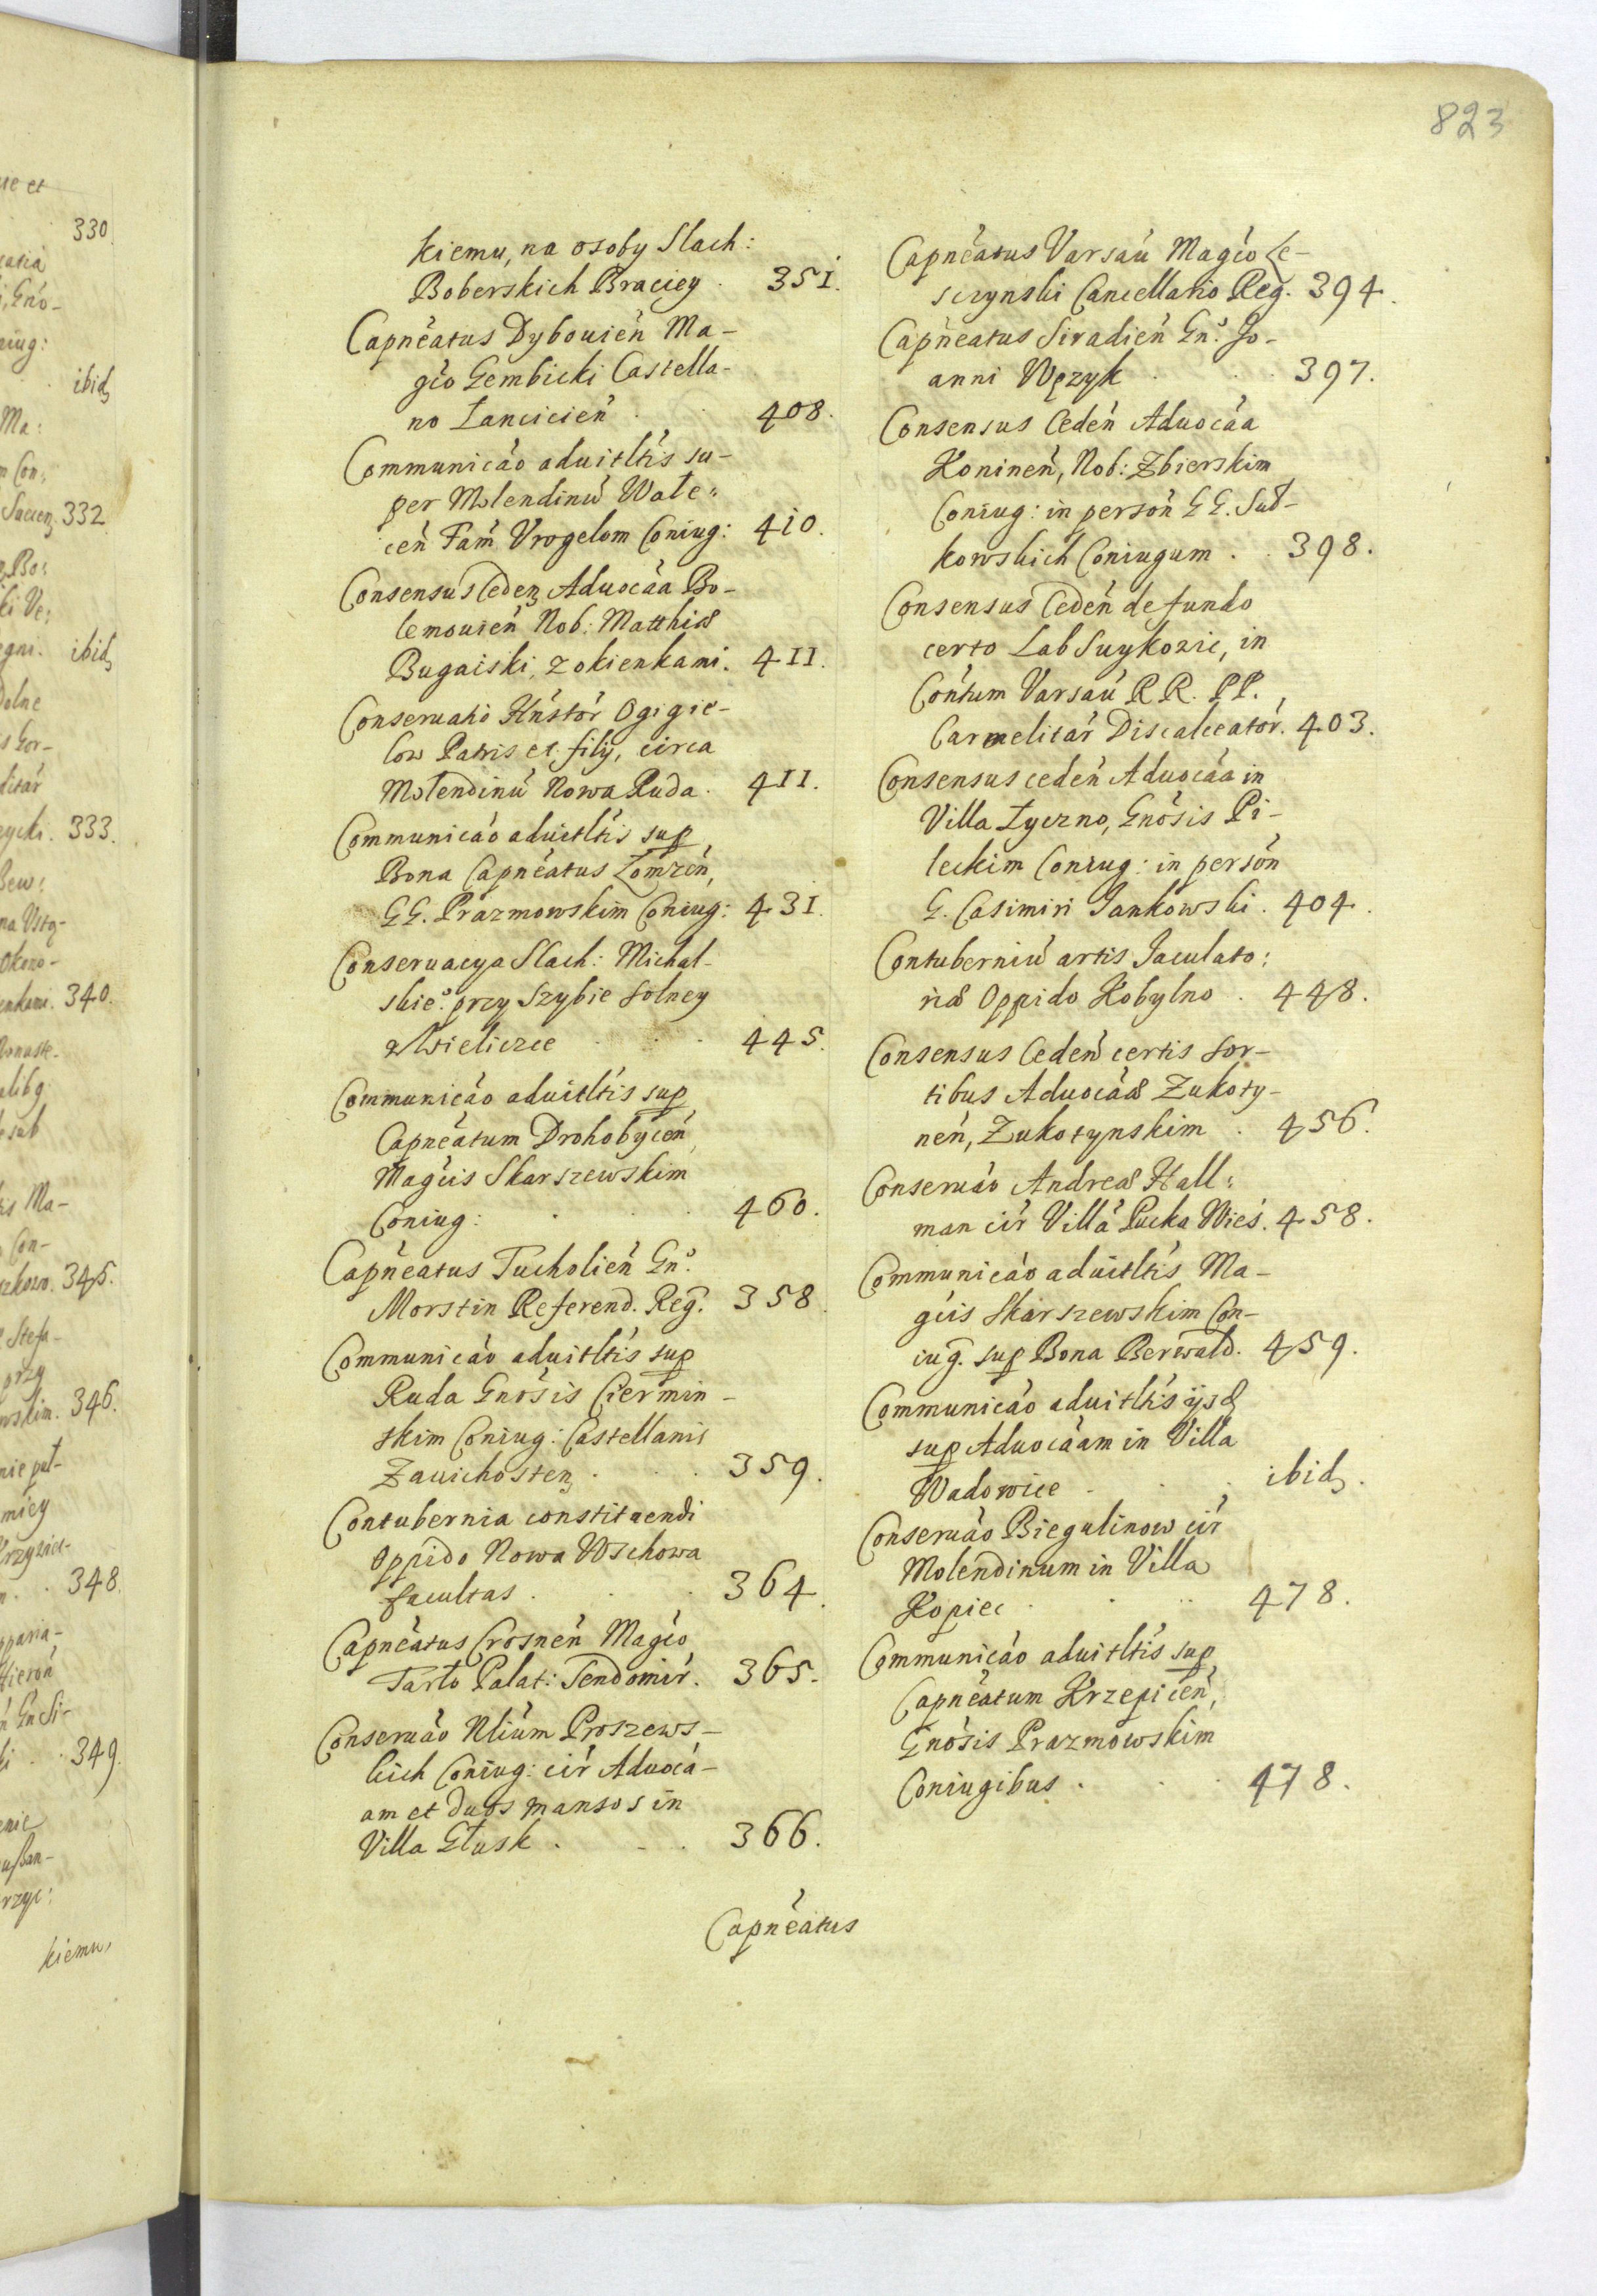 823
kiemu, na osoby Slach:
Boberskich Braciey . 351.
Capnéatus Dybouień Ma-
gío Gembicki Castella-
no Łancicień . . 408.
Communicáo aduitltís su-
per Molendinú Wałe:
ceń Fam̃ Vrogelom Coniug: 410.
Consensus Ceden Aduocáa Bo-
lemouień Nob: Matthiæ
Bugaiski, z okienkami. 411.
Conseruatio Hństór Ogigie-
low Patris et filij, circa
Molendinú Nowa Ruda. 411.
Communicáo aduitltís sup
Bona Capnéatus Łomzeń,
GG. Prazmowskim Coniug: 431.
Conseruacya Slach: Michal-
skie° przy Szybie solney
w Wieliczce . . . 445.
Communicáo aduitltís sup
Capnéatum Drohobyceń,
Magcis Skarszewskim
Coniug: . . . 460.
Capnéatus Tucholień Gn°
Morstin Referend. Reg. 358.
Communicáo aduitltís sup
Ruda Gnosis Ciermin-
skim Coniug: Castellanis
Zauichosten . . . 359.
Contubernia constituendi
Oppido Nowa Wschowa
facultas . . . 364.
Capnéatus Crosneń Magío
Tarło Palat: Sendomir. 365.
Conseruáo Nlium Proszews-
kich Coniug: cir Aduocá-
am et duos mansos in
Villa Głusk . . . 366.
Capnéatus
Capnéatus Varsaú Magío Le-
szynski Cancellario Reg. 394.
Capnéatus Siradień Gn° Jo-
anni Węzyk . . . 397.
Consensus Cedeń Aduocáa
Konineń, Nob: Zbierskim
Coniug: in persoń GG. Sul-
kowskich Coniugum . . 398.
Consensus Cedeń de fundo
certo Lab Suykozic, in
Cońtum Varsaú RR. PP.
Carmelitár Discalceatór. 403.
Consensus cedeń Aduocáa in
Villa Łyczno, Gnosis Pi-
leckim Coniug: in persoń
G. Casimiri Jankowski. 404.
Contuberniú artis Jaculato:
riæ Oppido Kobylno . 448.
Consensus Cedeń certis sor-
tibus Aduocáæ Zukoty-
neń, Zukotynskim . 456.
Conseruáo Andreæ Hall:
man cir Villá Pucka Wieś. 458.
Communicáo aduitltís Ma-
gcis Skarszewskim Con-
iug. sup Bona Berwald. 459.
Communicáo aduitltís ijsd
sup Aduocáam in Villa
Wadowice . . . ibid.
Conseruáo Biegulinow cir
Molendinum in Villa
Kopiec . . . 478.
Communicáo aduitltís sup
Capnéatum Krzepiceń,
Gnosis Prazmowskim
Coniugibus . . . 478.
330
ibid
332
ibid
333.
340.
345.
346.
348.
349.
kiemu,